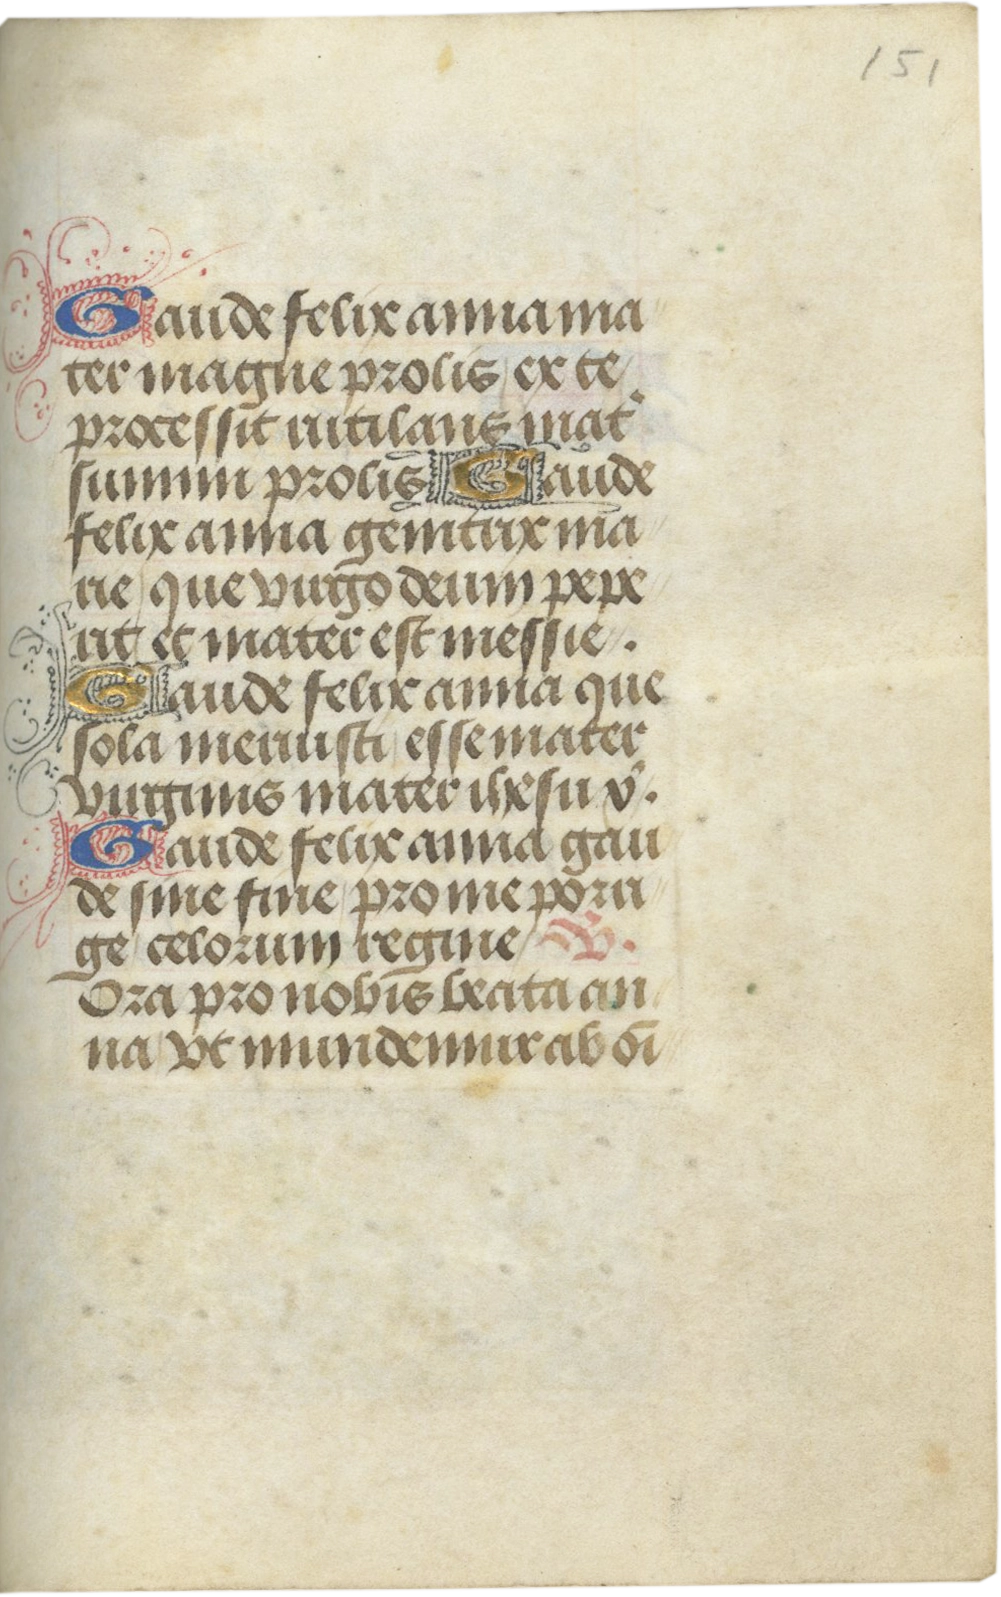 151
Gaude felix anna ma
ter magne prolis / ex te
processit rutilans mat᷑
summi prolis Gaude
felix anna genitrix ma
rie / que virgo deum pepe
rit et mater est messie / .
Gaude felix anna que
sola meruisti / esse mater
virginis mater ihesu xp̄i.
Gaude felix anna gau
de sine fine / pro me pora
ge celorum regine / V.
Ora pro nobis beata an
na / vt mundemur ab oī